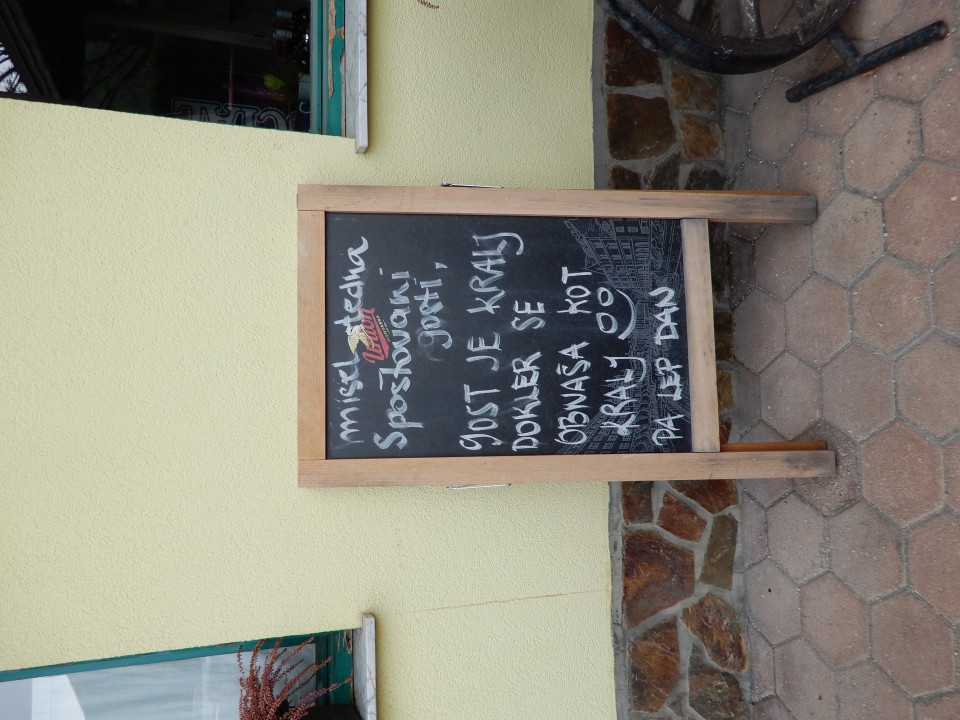 misel tedna
Union
Spoštovani
gosti,
GOST JE KRALJ
DOKLER SE
OBNAŠA KOT
KRALJ
PA LEP DAN